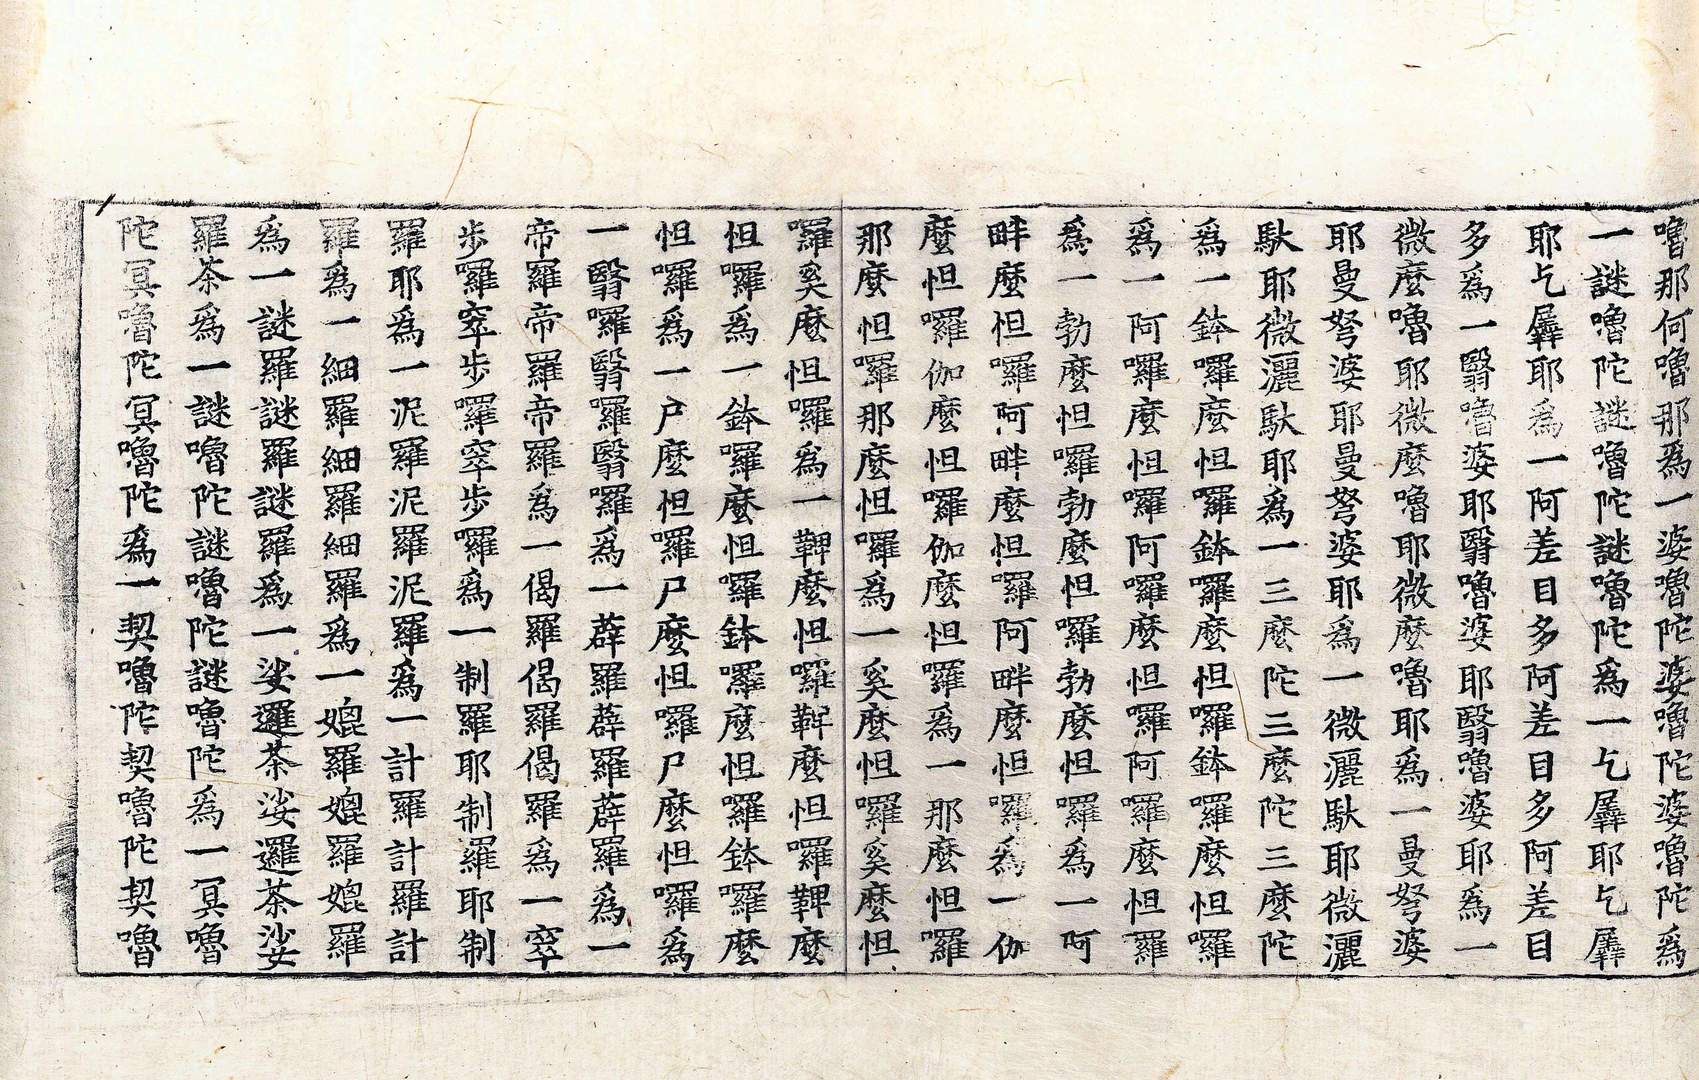 嚕那何嚕那爲一婆嚕陀婆嚕陀婆嚕陀爲
一謎嚕陀謎嚕陀謎嚕陀爲一乞羼耶乞羼
耶乞羼耶爲一阿差目多阿差目多阿差目
多爲一翳嚕婆耶翳嚕婆耶翳嚕婆耶爲一
微麼嚕耶微麼嚕耶微麼嚕耶爲一曼弩婆
耶曼弩婆耶曼弩婆耶爲一微灑馱耶微灑
馱耶微灑馱耶爲一三麼陀三麼陀三麼陀
爲一鉢囉麼怛囉鉢囉麼怛囉鉢囉麼怛囉
爲一阿囉麼怛囉阿囉麼怛囉阿囉麼怛羅
爲一勃麼怛囉勃麼怛囉勃麼怛囉爲一阿
畔麼怛囉阿畔麼怛囉阿畔麼怛囉爲一伽
麼怛囉伽麼怛囉伽麼怛囉爲一那麼怛囉
那麼怛囉那麼怛囉爲一奚麼怛囉奚麼怛
囉奚麼怛囉爲一鞞麼怛囉鞞麼怛囉鞞麼
怛囉爲一鉢囉麼怛囉鉢囉麼怛囉鉢囉麼
怛囉爲一尸麼怛囉尸麼怛囉尸麼怛囉爲
一翳囉翳囉翳囉爲一薜羅薜羅薜羅爲一
帝羅帝羅帝羅爲一偈羅偈羅偈羅爲一窣
步囉窣步囉窣步囉爲一制羅耶制羅耶制
羅耶爲一泥羅泥羅泥羅爲一計羅計羅計
羅爲一細羅細羅細羅爲一媲羅媲羅媲羅
爲一謎羅謎羅謎羅爲一娑邏茶娑邏茶娑
羅茶爲一謎嚕陀謎嚕陀謎嚕陀爲一冥嚕
陀冥嚕陀冥嚕陀爲一契嚕陀契嚕陀契嚕